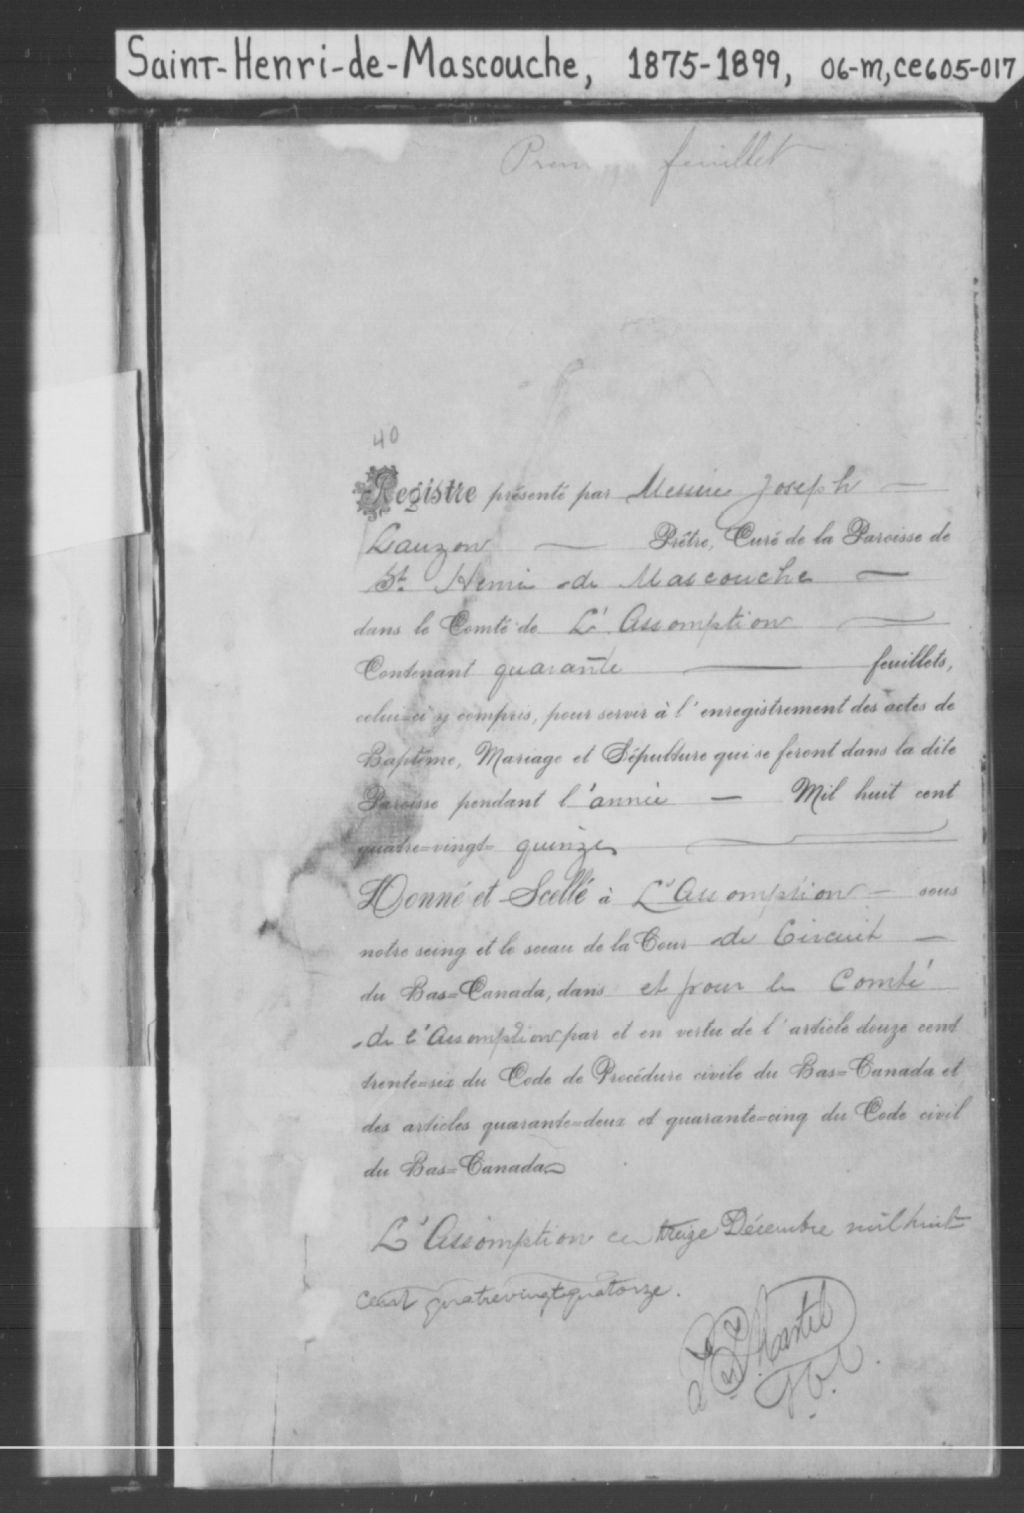 Saint-Henri-de-Mascouche, 1875-1899, 06-M, CE605-017
Prem feuillet
40
Registre présenté par Messire Joseph —
Lauzon — Prêtre, Curé de la Paroisse de
St. Henri de Mascouche —
dans le Comté de L'Assomption —
Contenant quarante — feuillets,
celui-ci y compris, pour servir à l'enregistrement des actes de
Baptême, Mariage et Sépulture qui se feront dans la dite
Paroisse pendant l'année — Mil huit cent
quatre=vingt= quinze
Donné et Scellé à L'Assomption — sous
notre seing et le sceau de la Cour de Circuit —
du Bas=Canada, dans et pour le Comté
de l'Assomption par et en vertu de l'article douze cent
trente=six du Code de Procédure civile du Bas=Canada et
des articles quarante=deux et quarante=cinq du Code civil
du Bas=Canada
L'Assomption ce treize Décembre mil huit
cent quatrevingtquatorze.
Martel